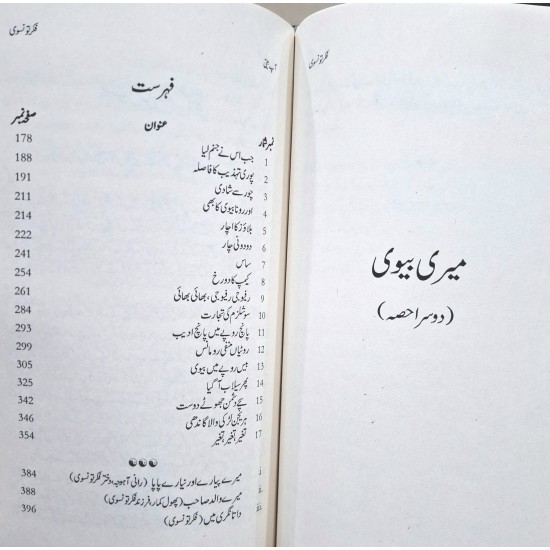 فکر تونسوی
میری بیوی
(دوسرا حصہ)
آپ بیتی
فکر تونسوی
فہرست
نمبر شمار عنوان صفحہ نمبر
1 جب اس نے جنم لیا 178
2 پوری تہذیب کا فاصلہ 188
3 چور سے شادی 191
4 اور رونا بیوی کا بھی 211
5 بلاؤز کا اچار 214
6 دو دونی چار 222
7 ساس 241
8 کیمپ کا دورخ 254
9 رفیوجی رفیوجی، بھائی بھائی 261
10 سوشلزم کی تجارت 284
11 پانچ روپے میں پانچ ادیب 293
12 روٹیاں منفی رومانس 299
13 بیس روپے میں بیوی 305
14 پھر سیلاب آ گیا 325
15 سچے دشمن جھوٹے دوست 342
16 ہریجن لڑکی والا گاندھی 346
17 تغیر، تغیر، تغیر 354
i. میرے پیارے اور نیارے پاپا (رانی آہوجہ، دختر فکر تونسوی) 384
ii. میرے والد صاحب (پھول کمار، فرزند فکر تونسوی) 388
iii. داتا نگری میں (فکر تونسوی) 396